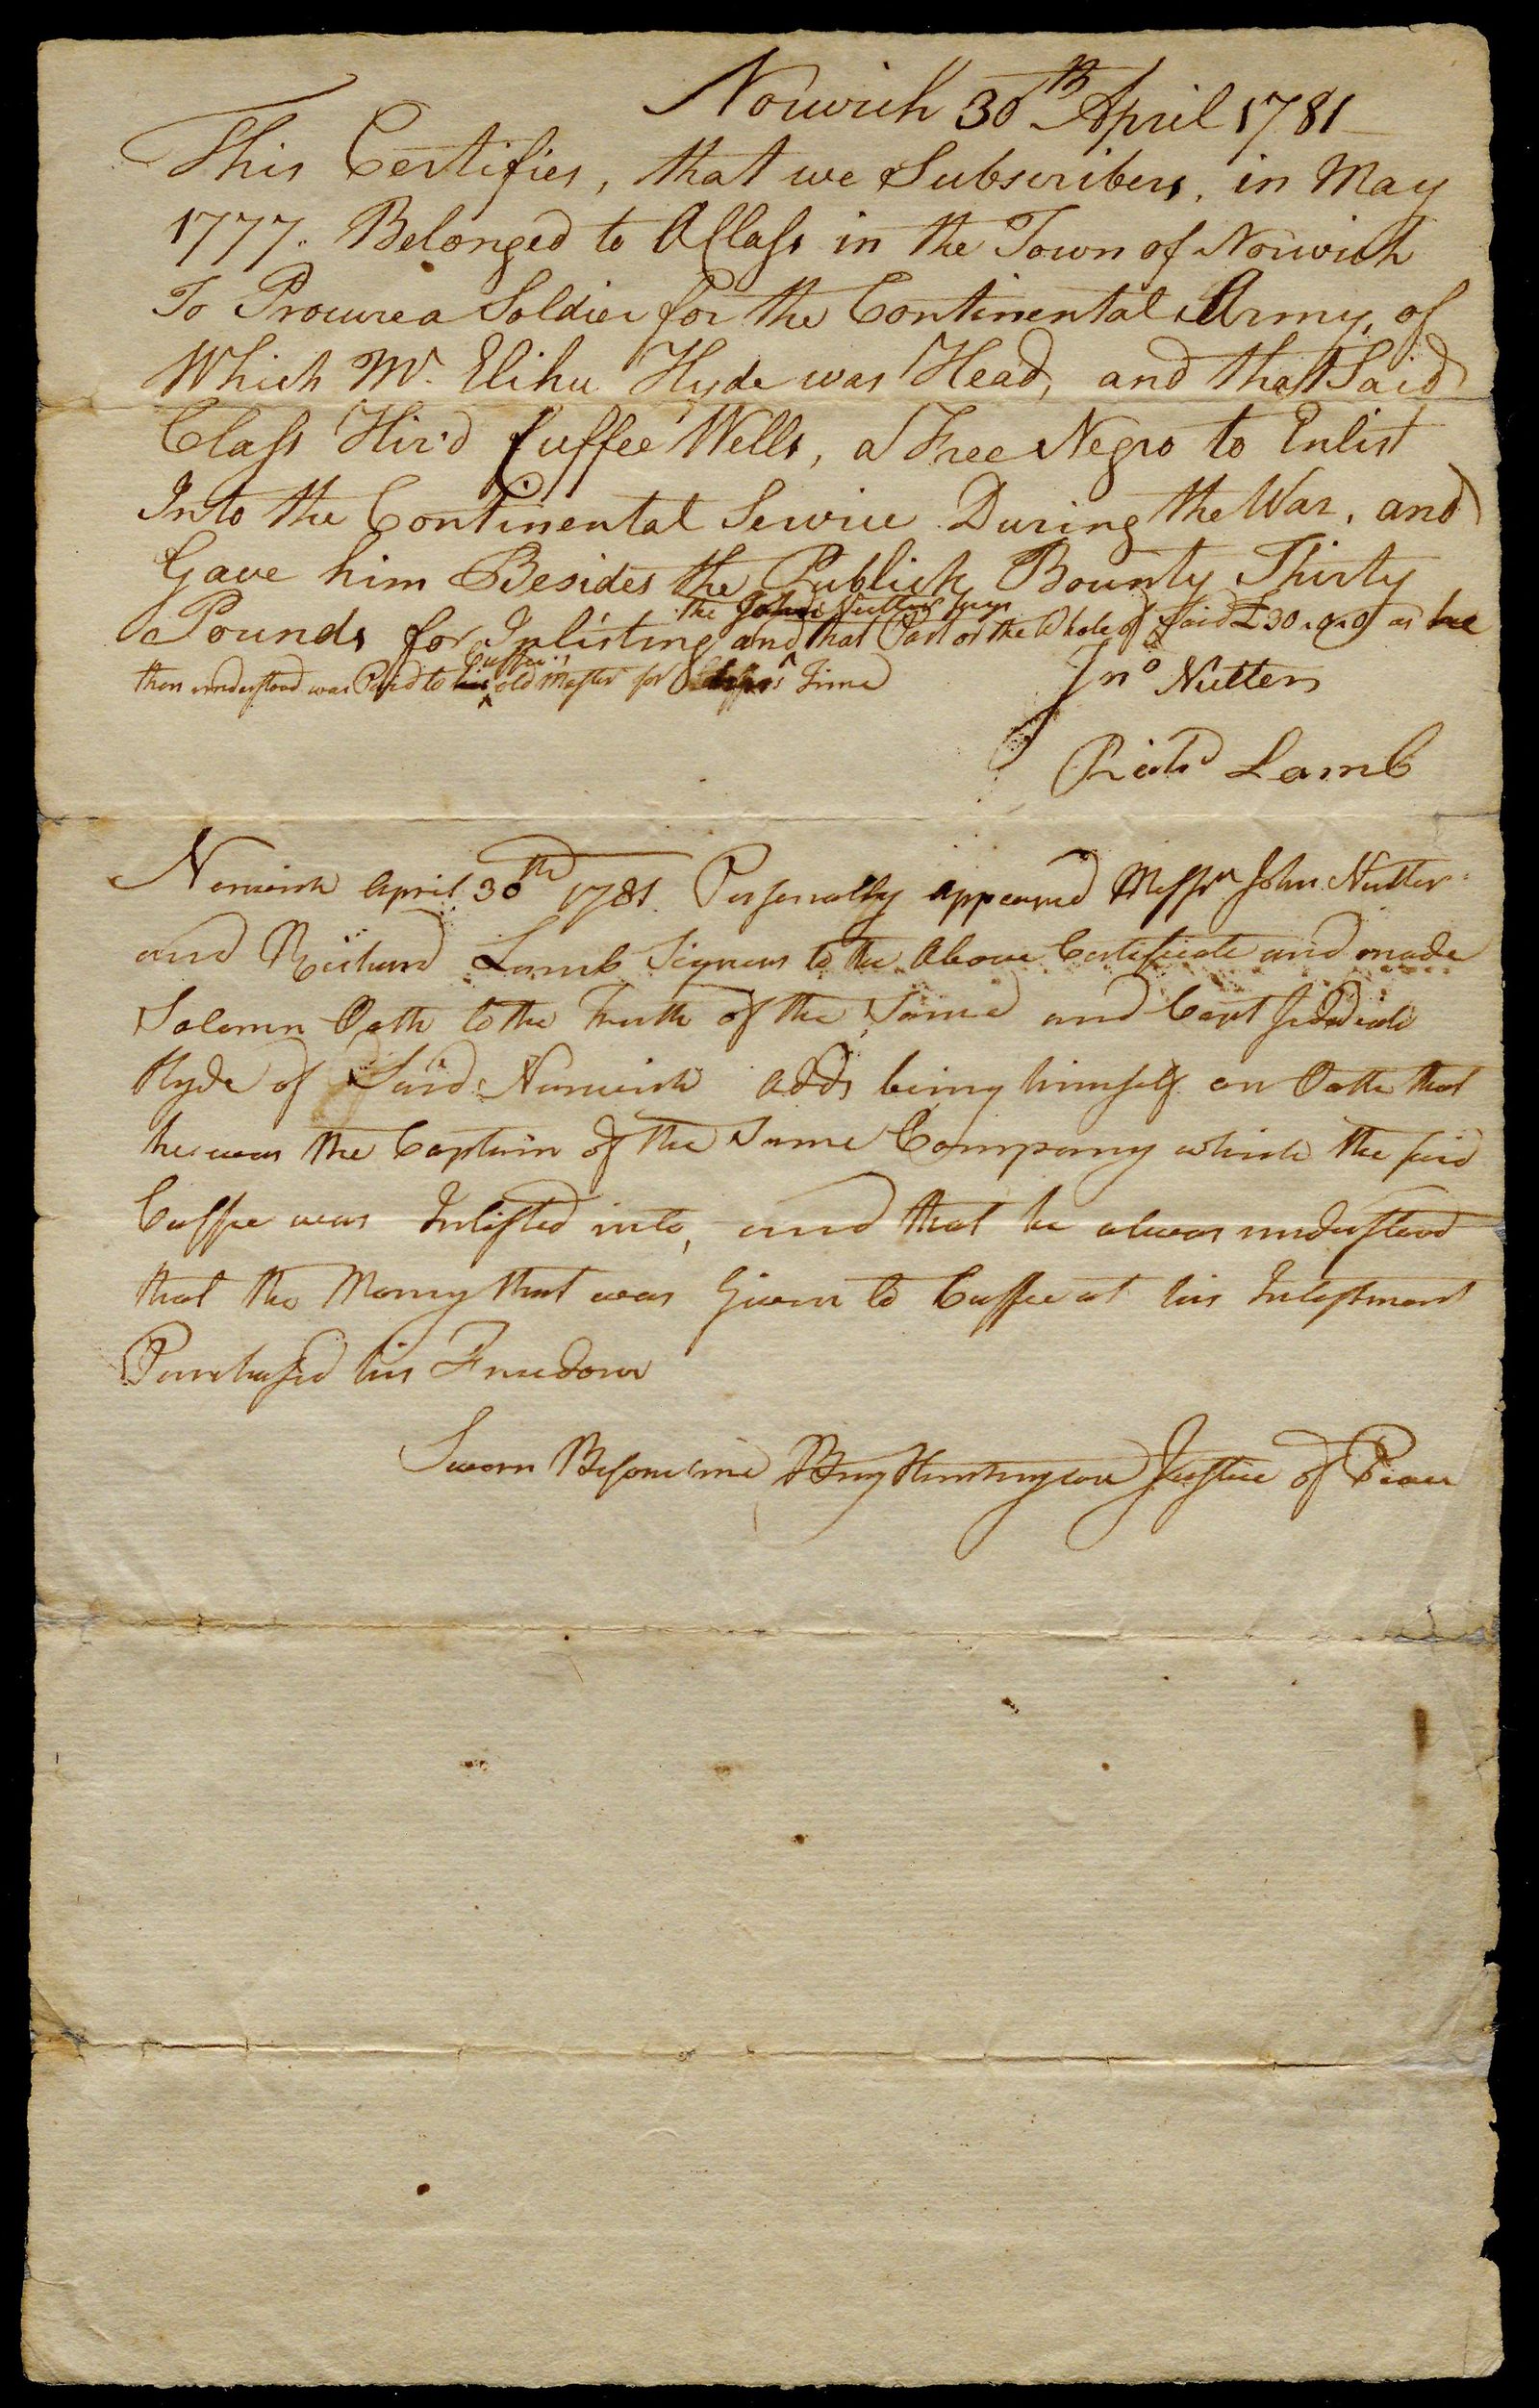 Norwich 30th April 1781
This Certifies, that we Subscribers, in May
1777. Belonged to A Class in the Town of Norwich
To Procure a Soldier for the Continental Army, of
Which Mr. Elihu Hyde was Head, and that Said
Class Hir'd Cuffee Wells, a Free Negro to Enlist
Into the Continental Service During the War, and
Gave him Besides the Publick Bounty Thirty
the John Nutter says
Pounds for Inlisting and that Part or the Whole of said £30.0.0 as he
Cuffee's
then understood was Paid to his old Master for Time
Jno Nutter
Richd Lamb
Norwich April 30th 1781 Personally appeared Messrs John Nutter
and Richard Lamb Signers to the Above Certificate and made
Solemn Oath to the Truth of the Same and Capt Jedediah
Hyde of Said Norwich adds being himself on Oath that
he was the Captain of the Same Company which the said
Cuffee was Inlisted into, and that he always understood
that the Money that was Given to Cuffee at his Inlistment
Purchased his Freedom
Sworn Before me Benj Huntington Justice of Peace